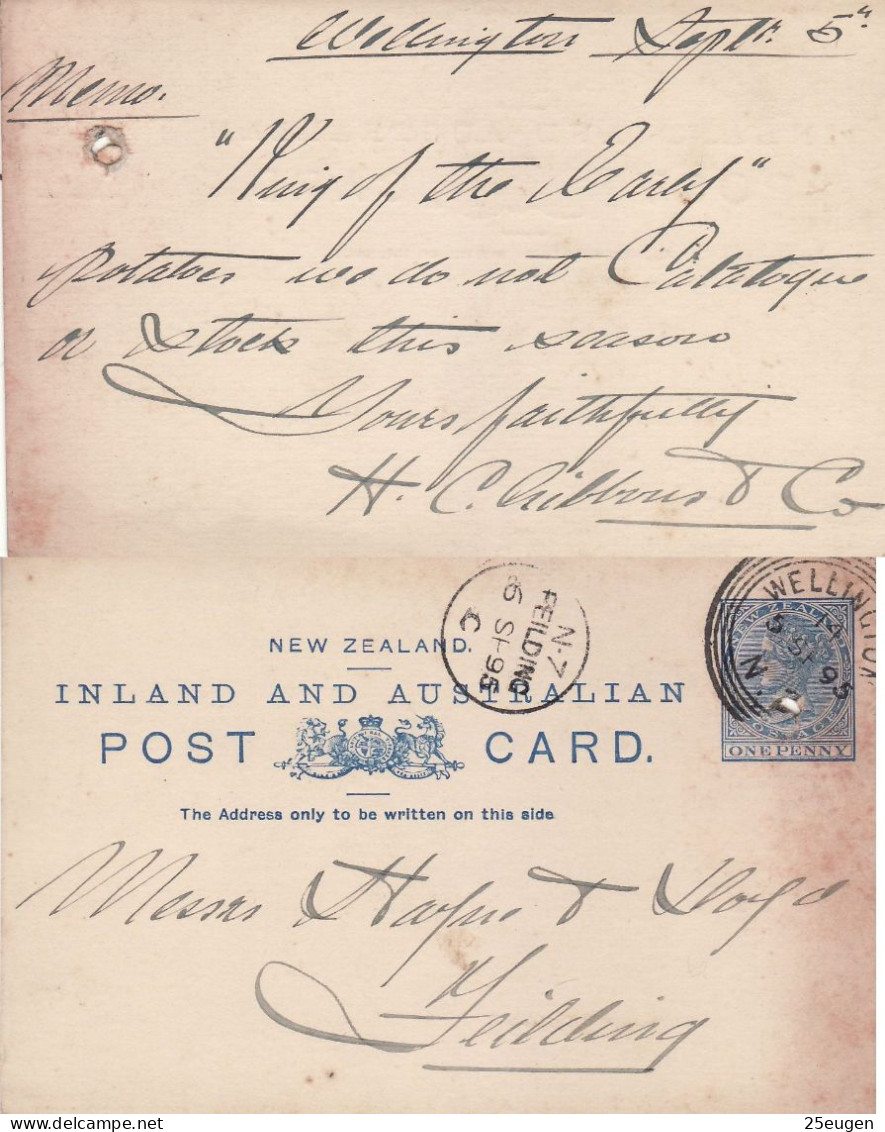 Wellington Septr. 5th
Memo.
"King of the Early"
potatoes we do not Catalogue
or Stock this season
Yours faithfully
H. C. Gibbons & Co
WELLINGTON
14
5 SP 95
N.Z
N-Z
FEILDING
6 SP 95
C
NEW ZEALAND
POSTAGE
ONE PENNY
NEW ZEALAND.
INLAND AND AUSTRALIAN
POST CARD.
The Address only to be written on this side
Messrs Hayne & Lloyd
Feilding
www.delcampe.net
25eugen